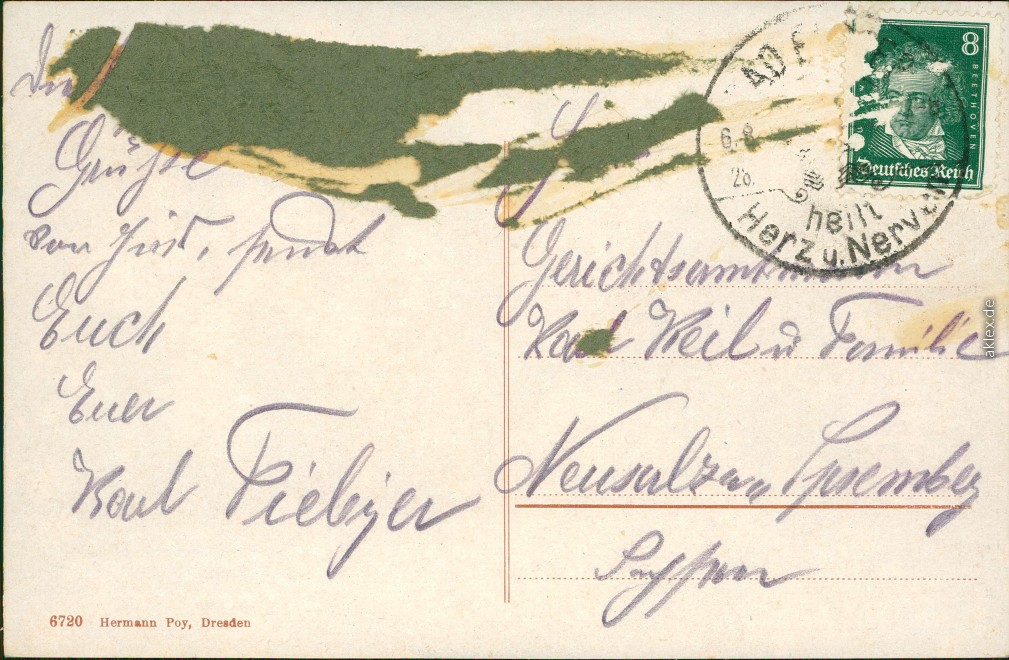 Grüße
von hier, sendet
Euch
Euer
Karl Fiebiger
6720 Hermann Poy, Dresden
BAD
6. 8.
26.
heilt
Herz u. Nerven
8
BEETHOVEN
Deutsches Reich
Gerichtsamtmann
Karl Weil u Familie
Neusalza Spremberg
Sachsen
aklex.de